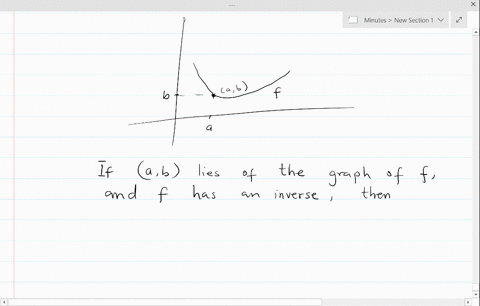 ...
Minutes > New Section 1
(a,b)
b
f
a
If (a,b) lies of the graph of f,
and f has an inverse, then